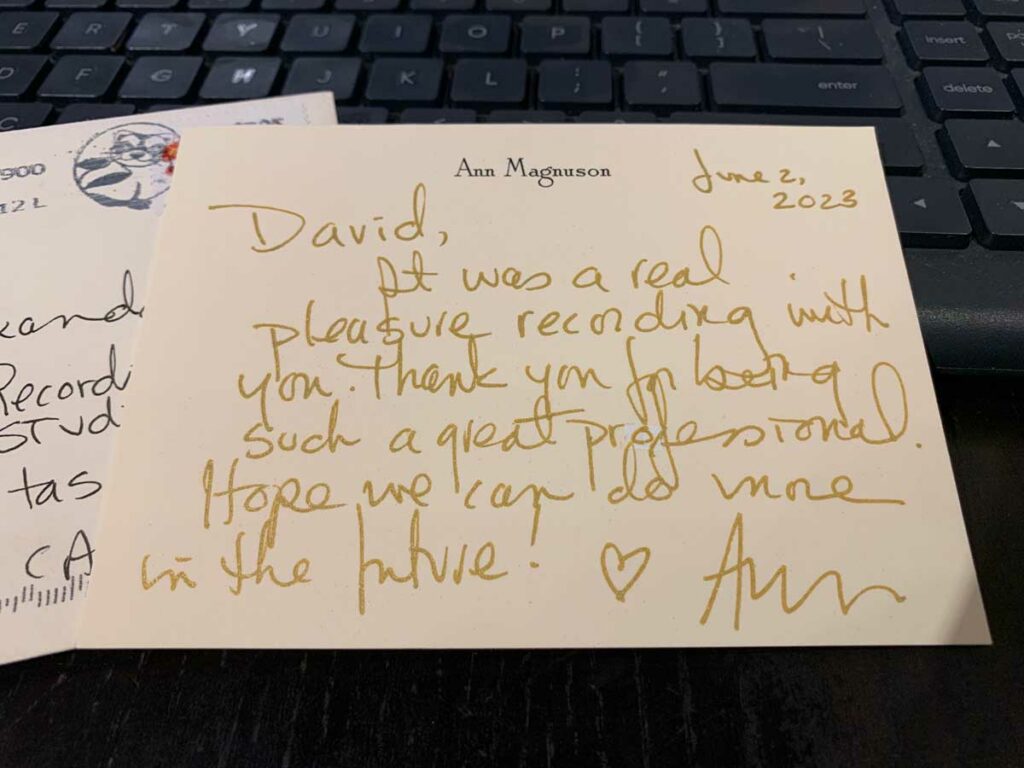 E R T Y U I O P { [ } ] | \ insert
D F G H J K L : ; " ' enter delete
C
900
12L
Ann Magnuson
June 2,
2023
David,
It was a real
pleasure recording with
you. Thank you for being
such a great professional.
Hope we can do more
in the future! ♡ Ann
Record
STUD
tas
CA